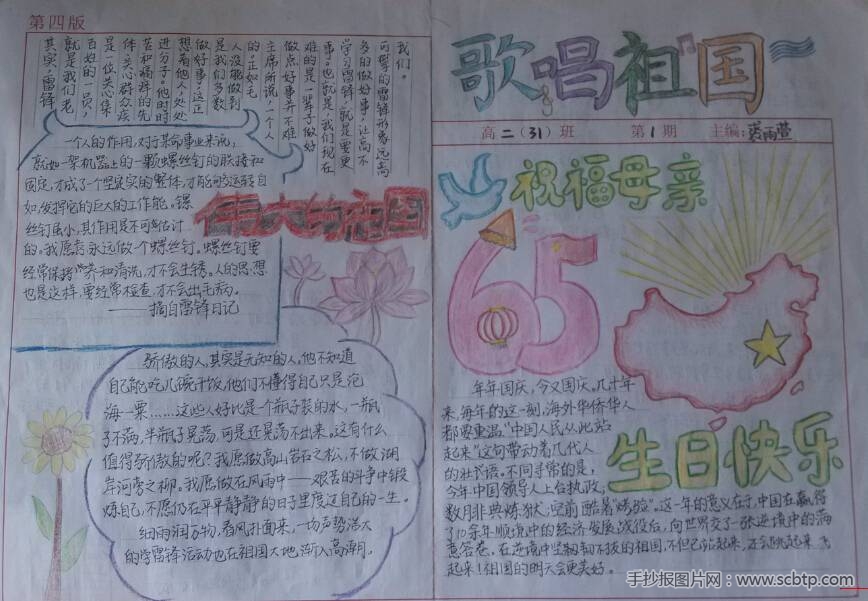 第四版
我们。
可擎的雷锋形象远高
多的做好事，让高不
学习雷锋，就是要更
事。也就是，我们现在
难的是一辈子做好
做点好事并不难
主席所说，一个人
的。正如毛
人没能做到
是我们多数
做好事，这正
想着他人，处处
进分子。他时时
苦和痛痒的先
体，关心群众疾
是一位关心集
百姓的一员，
就是我们老
其实，雷锋
一个人的作用，对于革命事业来说，
就如一架机器上的一颗螺丝钉的联接和
固定，才成了个坚实的整体，才能够运转自
如，发挥它的巨大的工作能。镙
丝钉虽小，其作用是不可估计
的。我愿意永远做个螺丝钉。螺丝钉要
经常保养和清洗，才不会生锈。人的思想
也是这样，要经常检查，才不会出毛病。
——摘自雷锋日记
伟大的祖国
骄傲的人，其实是无知的人。他不知道
自己能吃几碗干饭，他们不懂得自己只是沧
海一粟……这些人好比是个瓶子装的水，一瓶
子不满，半瓶子晃荡，可是还晃荡不出来。这有什么
值得骄傲的呢？我愿做高山岩石之松，不做湖
岸河旁之柳。我愿做在风雨中——艰苦的斗争中锻
炼自己，不愿仍在平平静静的日子里度过自己的一生。
细雨润万物，春风扑面来，一场声势浩大
的学雷锋活动也在祖国大地渐入高潮。
歌唱祖国
高二（31）班 第1期 主编：雨萱
祝福母亲
65
年年国庆，今又国庆。几十年
来，每年的这一刻，海外华侨华人
都要重温“中国人民从此站
起来”这句带动着几代人
的壮语。不同寻常的是，
今年中国领导人上台执政，
数月非典炼狱，空前酷著“烤验”。这一年的意义在于，中国在赢得
了10余年顺境中的经济发展战役后，向世界交了一张逆境中的满
意答卷。在逆境中坚韧不拔的祖国，不但已站起来，才会跳起来飞
起来！祖国的明天会更美好。
生日快乐
手抄报图片网：www.scbtp.com